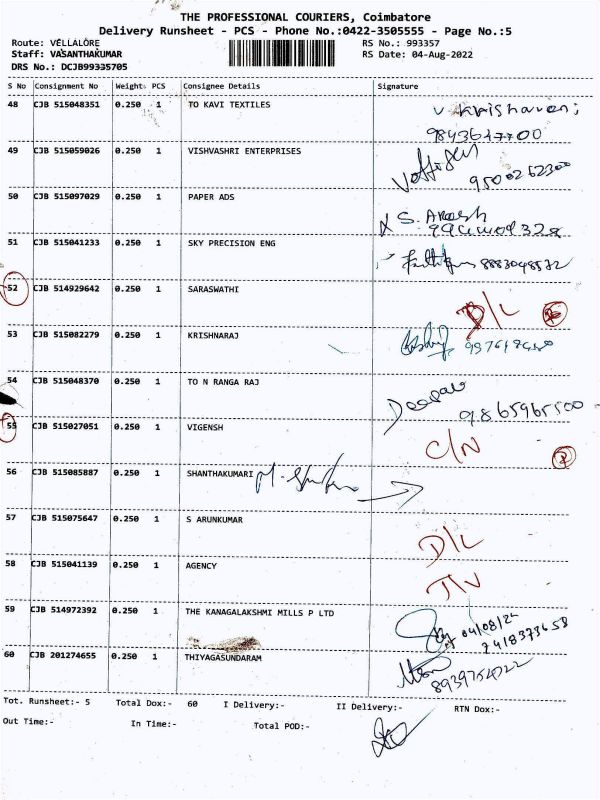 THE PROFESSIONAL COURIERS, Coimbatore
Delivery Runsheet - PCS - Phone No.:0422-3505555 - Page No.:5
Route: VELLALORE
Staff: VASANTHAKUMAR
DRS No.: DCJB99335705
RS No.: 993357
RS Date: 04-Aug-2022
S No Consignment No Weight PCS Consignee Details Signature
48 CJB 515048351 0.250 1 TO KAVI TEXTILES
49 CJB 515059026 0.250 1 VISHVASHRI ENTERPRISES
9500262300
50 CJB 515097029 0.250 1 PAPER ADS
S. Akash
51 CJB 515041233 0.250 1 SKY PRECISION ENG
8883048532
52 CJB 514929642 0.250 1 SARASWATHI
D/L
53 CJB 515082279 0.250 1 KRISHNARAJ
54 CJB 515048370 0.250 1 TO N RANGA RAJ
9865965500
55 CJB 515027051 0.250 1 VIGENSH
C/N
56 CJB 515085887 0.250 1 SHANTHAKUMARI
57 CJB 515075647 0.250 1 S ARUNKUMAR
D/L
58 CJB 515041139 0.250 1 AGENCY
59 CJB 514972392 0.250 1 THE KANAGALAKSHMI MILLS P LTD
04/08/22
7418373658
60 CJB 201274655 0.250 1 THIYAGASUNDARAM
Tot. Runsheet:- 5 Total Dox:- 60 I Delivery:- II Delivery:- RTN Dox:-
Out Time:- In Time:- Total POD:-